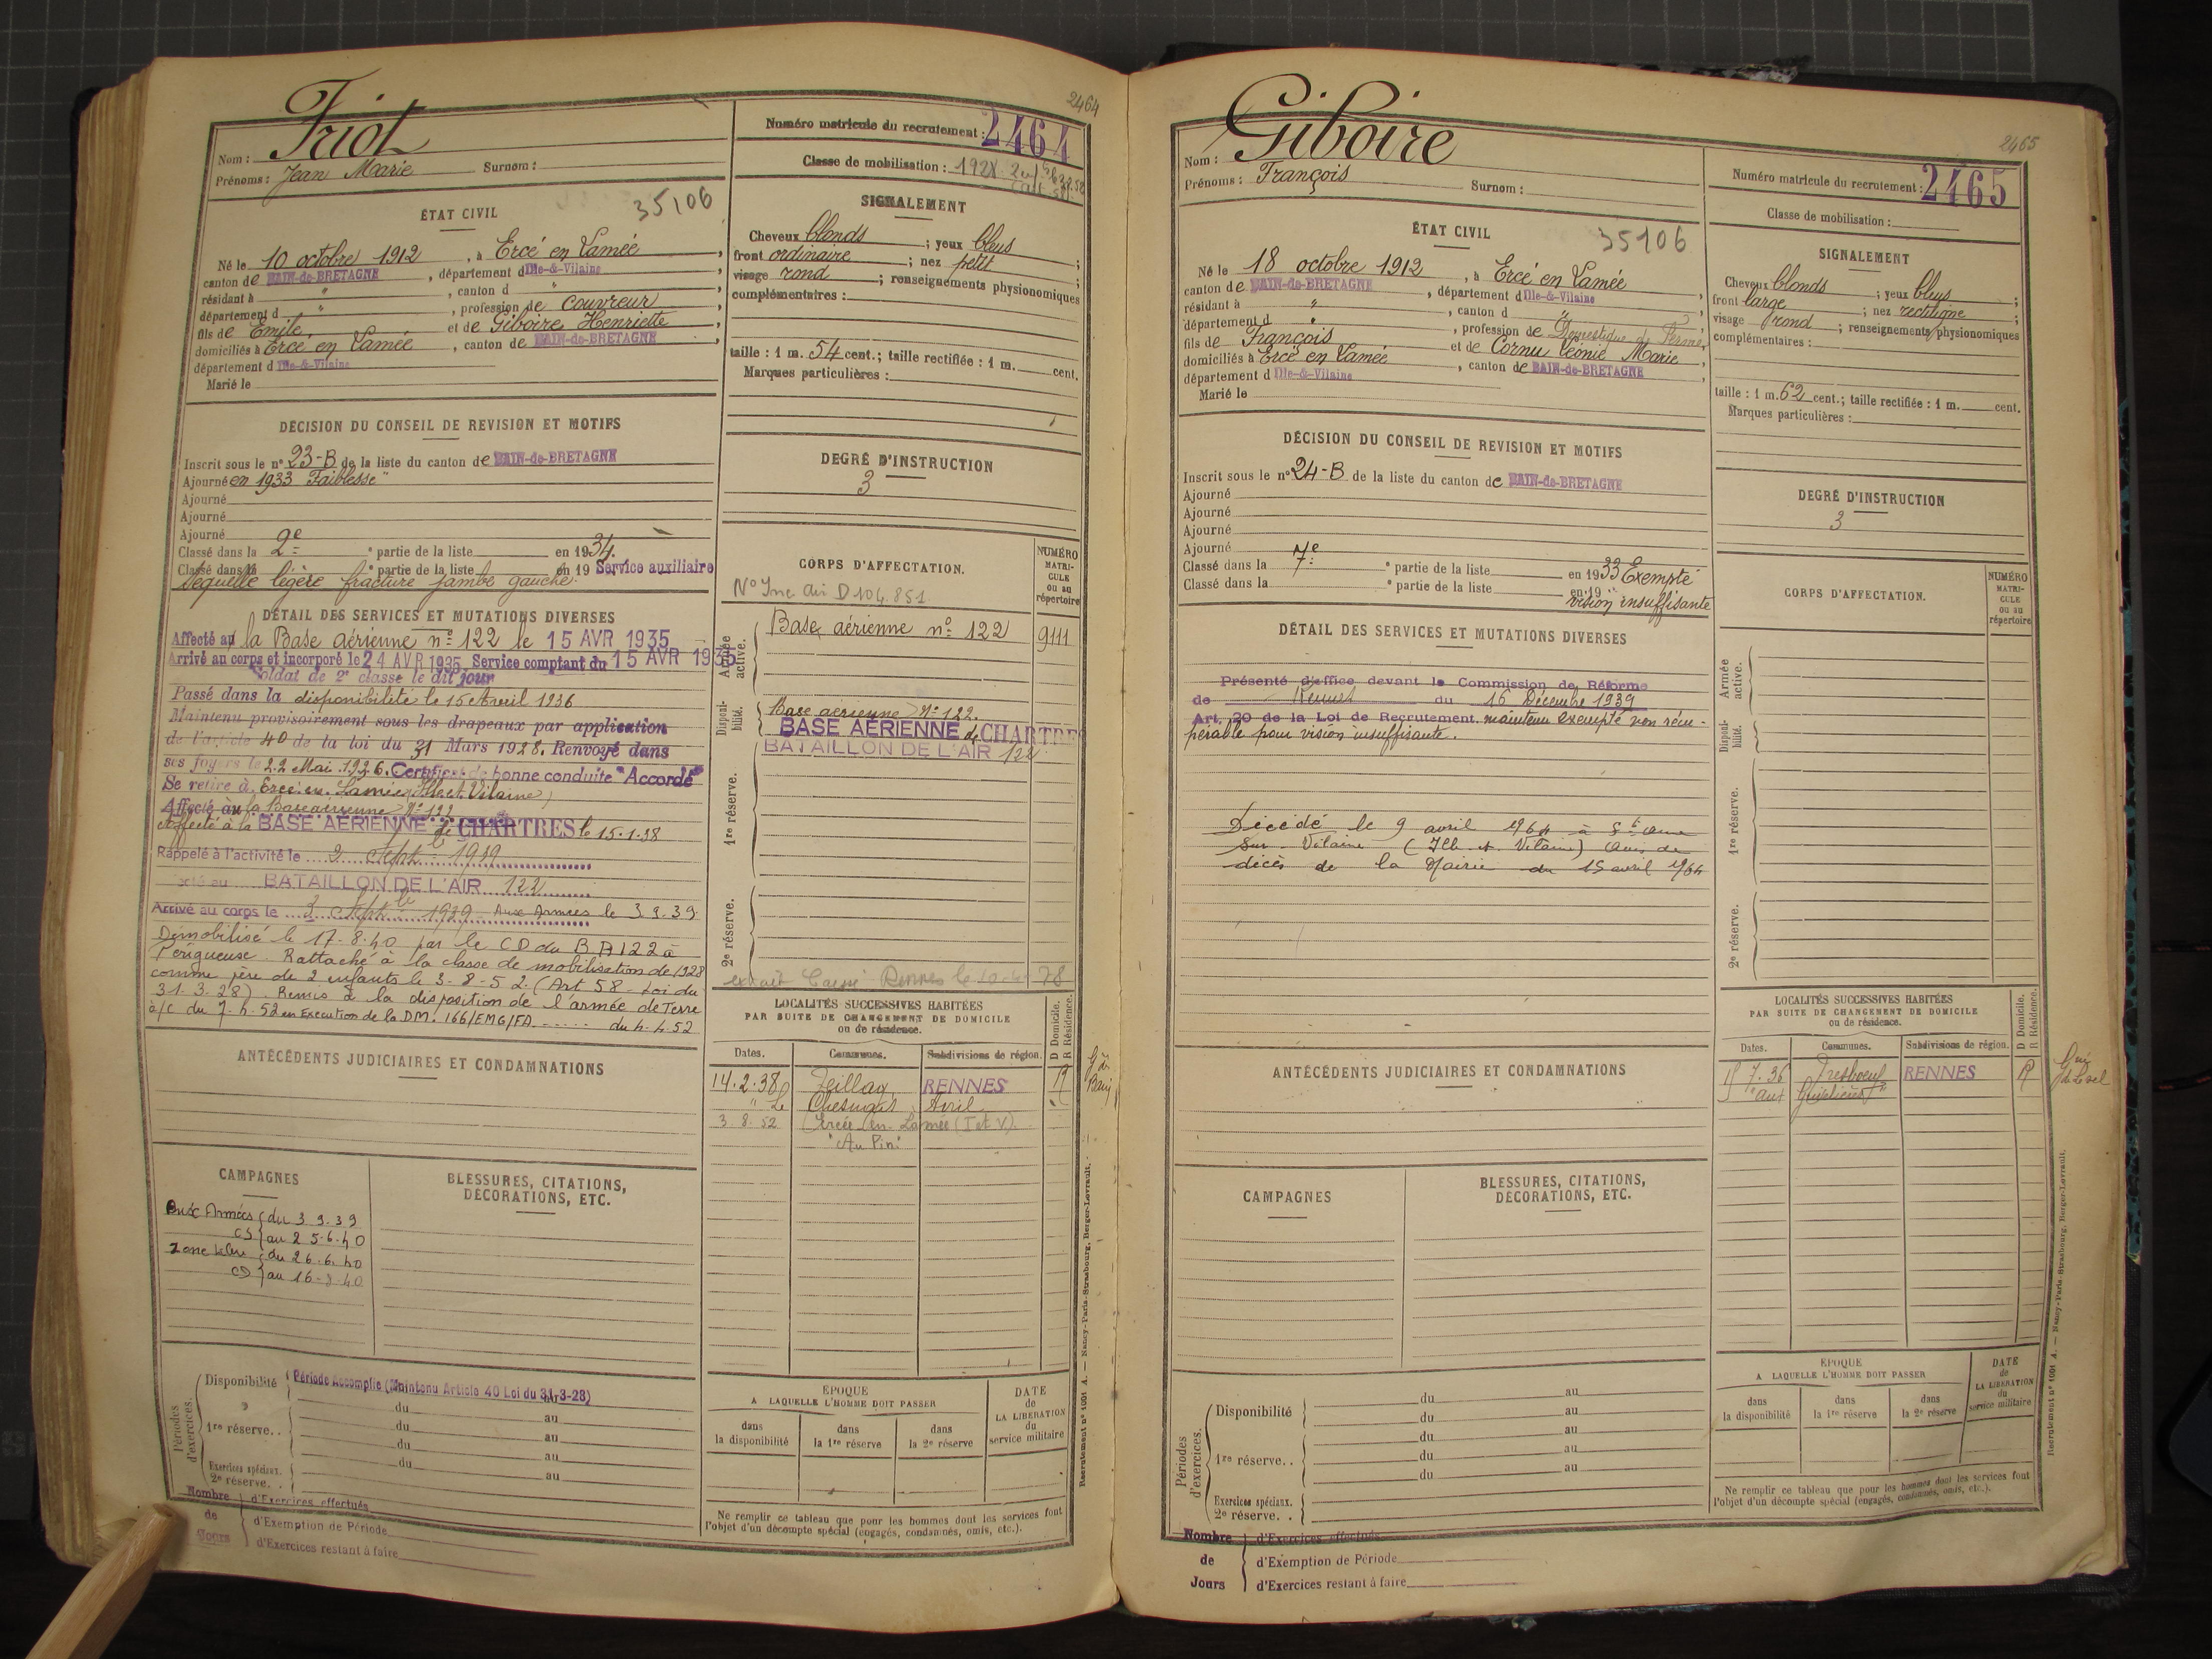 2464
Friot
Nom :
Prénoms : Jean Marie Surnom :
Numéro matricule du recrutement : 2464
Classe de mobilisation : 1928
ÉTAT CIVIL
35106
Né le 10 octobre 1912, à Ercé en Lamée,
canton de BAIN-de-BRETAGNE, département d Ille-&-Vilaine,
résidant à ", canton d ",
département d ", profession de couvreur,
fils de Emile, et de Giboire Henriette,
domiciliés à Ercé en Lamée, canton de BAIN-de-BRETAGNE,
département d Ille-&-Vilaine
Marié le
SIGNALEMENT
Cheveux blonds ; yeux bleus ;
front ordinaire ; nez petit ;
visage rond ; renseignements physionomiques
complémentaires :
taille : 1 m. 54 cent.; taille rectifiée : 1 m. cent.
Marques particulières :
DÉCISION DU CONSEIL DE REVISION ET MOTIFS
Inscrit sous le n° 23-B de la liste du canton de BAIN-de-BRETAGNE
Ajourné en 1933 "Faiblesse"
Ajourné
Ajourné
Ajourné
Classé dans la 2e partie de la liste en 1934.
Classé dans la e partie de la liste en 19 Service auxiliaire
Séquelle légère fracture jambe gauche.
DEGRÉ D'INSTRUCTION
3
DÉTAIL DES SERVICES ET MUTATIONS DIVERSES
Affecté au la Base aérienne n° 122 le 15 AVR 1935
Arrivé au corps et incorporé le 24 AVR 1935 Service comptant du 15 AVR 1935
Soldat de 2e classe le dit jour
Passé dans la disponibilité le 15 Avril 1936
Maintenu provisoirement sous les drapeaux par application
de l'article 40 de la loi du 31 Mars 1928. Renvoyé dans
ses foyers le 22 Mai 1936. Certificat de bonne conduite "Accordé"
Se retire à Ercé en Lamée (Ille et Vilaine)
Affecté au la Base aérienne N° 122
Affecté à la BASE AÉRIENNE de CHARTRES le 15.1.38
Rappelé à l'activité le 2 Septbre 1939
BATAILLON DE L'AIR 122
Arrivé au corps le 3 Septbre 1939 Aux Armées le 3.9.39.
Démobilisé le 17.8.40 par le CD du BA 122 à
Périgueuse. Rattaché à la classe de mobilisation de 1928
comme père de 2 enfants le 3-8-52. (Art 58 - Loi du
31.3.28). Remis à la disposition de l'armée de Terre
à/c du 7.4.52 en Execution de la DM. 166/EMG/FA ..... du 4.4.52
CORPS D'AFFECTATION.
NUMÉRO MATRICULE ou au répertoire
D 104.851
Armée active.
Base aérienne n° 122 9111
Disponibilité.
Base aérienne N° 122.
BASE AÉRIENNE de CHARTRES
BATAILLON DE L'AIR 122
1re réserve.
2e réserve.
ANTÉCÉDENTS JUDICIAIRES ET CONDAMNATIONS
LOCALITÉS SUCCESSIVES HABITÉES
PAR SUITE DE CHANGEMENT DE DOMICILE
ou de résidence.
D Domicile.
R Résidence.
Dates. Communes. Subdivisions de région.
14.2.38 Teillay RENNES R
" Le Chesnais Avril
3.8.52 Ercée en Lamée (I et V).
"Au Pin"
CAMPAGNES
Aux Armées du 3.9.39
CS au 25.6.40
Zone Libre du 26.6.40
CS au 16.8.40
BLESSURES, CITATIONS,
DÉCORATIONS, ETC.
Périodes d'exercices.
Disponibilité Période Accomplie (Maintenu Article 40 Loi du 31-3-28)
du au
1re réserve. . du au
du au
du au
Exercices spéciaux.
2e réserve. . au
Nombre de Jours
d'Exercices effectués
d'Exemption de Période
d'Exercices restant à faire
ÉPOQUE
A LAQUELLE L'HOMME DOIT PASSER
dans la disponibilité
dans la 1re réserve
dans la 2e réserve
DATE de LA LIBÉRATION du service militaire
Ne remplir ce tableau que pour les hommes dont les services font
l'objet d'un décompte spécial (engagés, condamnés, omis, etc.).
Recrutement n° 1001 A. — Nancy-Paris-Strasbourg, Berger-Levrault.
2465
Giboire
Nom :
Prénoms : François Surnom :
Numéro matricule du recrutement : 2465
Classe de mobilisation :
ÉTAT CIVIL
35106
Né le 18 octobre 1912, à Ercé en Lamée,
canton de BAIN-de-BRETAGNE, département d Ille-&-Vilaine,
résidant à ", canton d ",
département d ", profession de Domestique de Ferme,
fils de François et de Cornu Léonie Marie,
domiciliés à Ercé en Lamée, canton de BAIN-de-BRETAGNE,
département d Ille-&-Vilaine
Marié le
SIGNALEMENT
Cheveux blonds ; yeux bleus ;
front large ; nez rectiligne ;
visage rond ; renseignements physionomiques
complémentaires :
taille : 1 m. 62 cent.; taille rectifiée : 1 m. cent.
Marques particulières :
DÉCISION DU CONSEIL DE REVISION ET MOTIFS
Inscrit sous le n° 24-B de la liste du canton de BAIN-de-BRETAGNE
Ajourné
Ajourné
Ajourné
Ajourné
Classé dans la 7e partie de la liste en 1933 Exempté
Classé dans la e partie de la liste en 19
vision insuffisante
DEGRÉ D'INSTRUCTION
3
DÉTAIL DES SERVICES ET MUTATIONS DIVERSES
Présenté d'office devant la Commission de Réforme
de Rennes du 16 Décembre 1939
Art. 20 de la Loi de Recrutement. maintenu exempté non récu-
pérable pour vision insuffisante.
Décédé le 9 avril 1964 à Ste Anne
sur Vilaine (Ille et Vilaine) avis de
décès de la Mairie du 15 avril 1964
CORPS D'AFFECTATION.
NUMÉRO MATRICULE ou au répertoire
Armée active.
Disponibilité.
1re réserve.
2e réserve.
ANTÉCÉDENTS JUDICIAIRES ET CONDAMNATIONS
LOCALITÉS SUCCESSIVES HABITÉES
PAR SUITE DE CHANGEMENT DE DOMICILE
ou de résidence.
D Domicile.
R Résidence.
Dates. Communes. Subdivisions de région.
7.36 Tresboeuf RENNES R
CAMPAGNES
BLESSURES, CITATIONS,
DÉCORATIONS, ETC.
Périodes d'exercices.
Disponibilité du au
du au
1re réserve. . du au
du au
du au
Exercices spéciaux.
2e réserve. .
Nombre de Jours
d'Exercices effectués
d'Exemption de Période
d'Exercices restant à faire
ÉPOQUE
A LAQUELLE L'HOMME DOIT PASSER
dans la disponibilité
dans la 1re réserve
dans la 2e réserve
DATE de LA LIBÉRATION du service militaire
Ne remplir ce tableau que pour les hommes dont les services font
l'objet d'un décompte spécial (engagés, condamnés, omis, etc.).
Recrutement n° 1001 A. — Nancy-Paris-Strasbourg, Berger-Levrault.